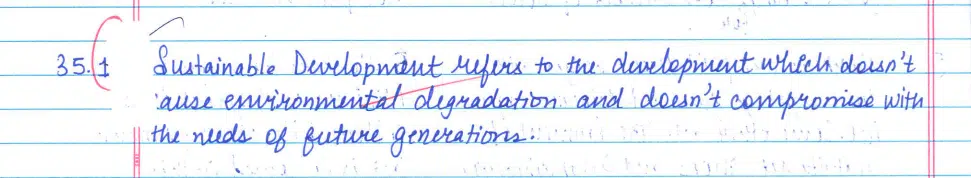 35.1 Sustainable Development refers to the development which doesn't
'ause environmental degradation and doesn't compromise with
the needs of future generations.